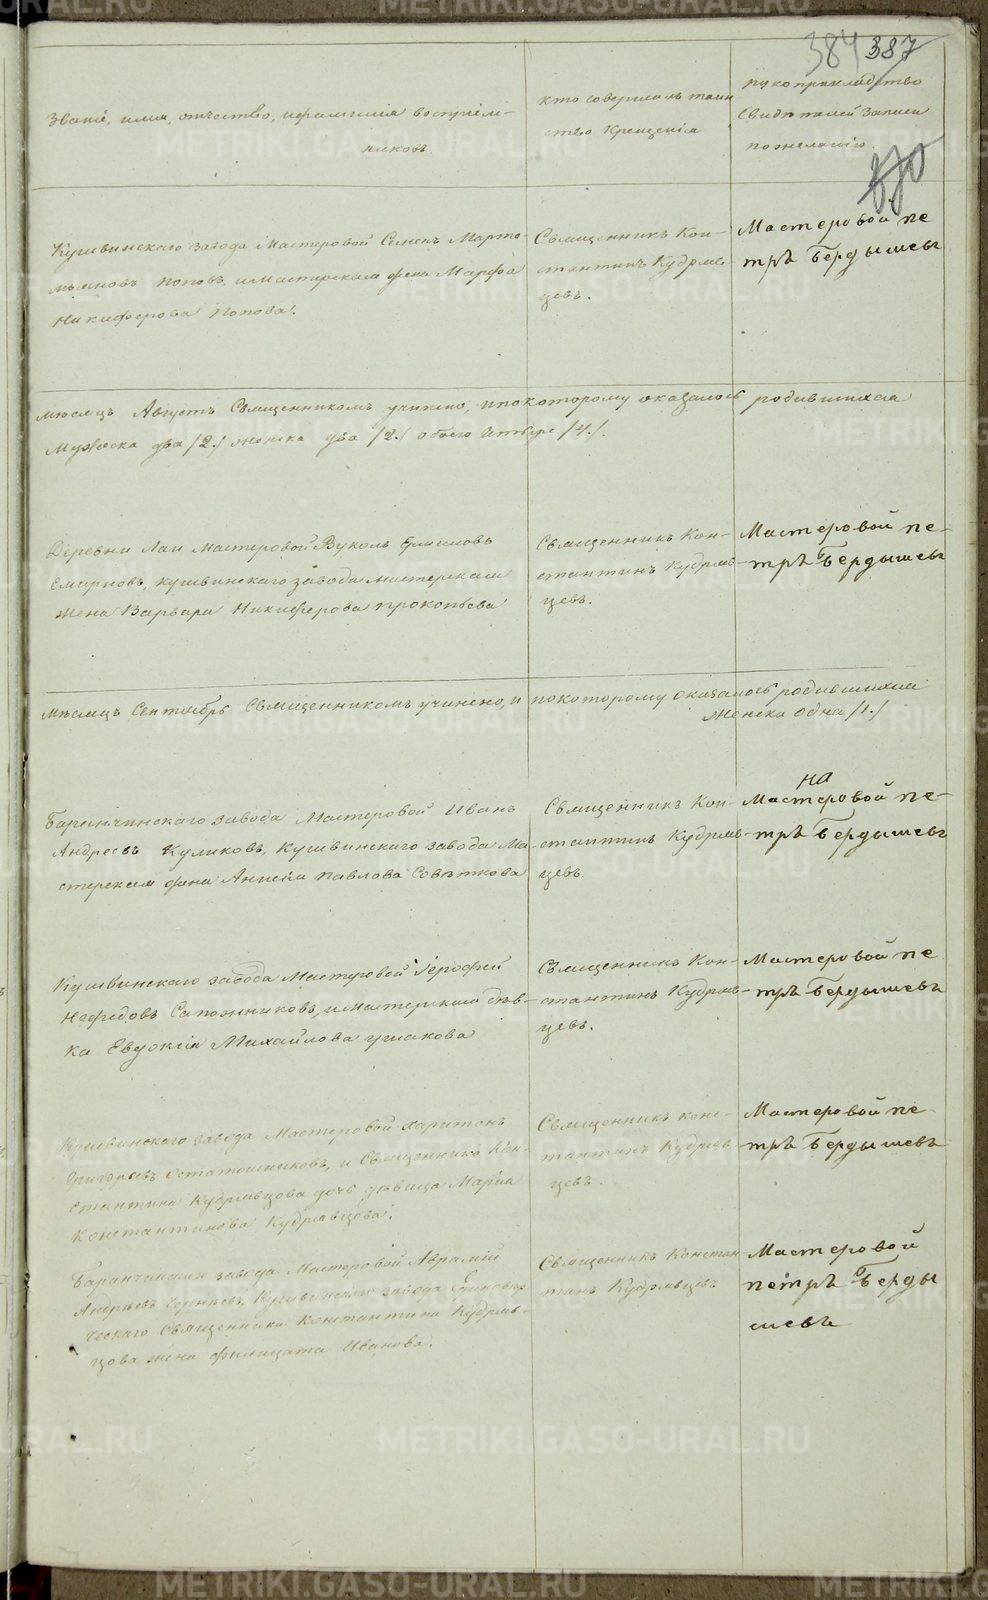 384 387
Званіе, имя, отчество, и фамилія воспріем-
никовъ.
кто совершалъ таин
ство Крещенія
рукоприкладство
Свидѣтелей записи
по желанію.
Кушвинскаго завода Мастеровой Семенъ Марте-
мьяновъ Поповъ, и мастерская жена Марфа
Никиферова Попова.
Священникъ Кон-
стантинъ Кудряв-
цевъ.
Мастеровой пе
тръ Бердышевъ
мѣсяцъ Августъ Священникомъ учинено, и по которому оказалось родившихся
Мужеска два /2./ женска два /2./ обоего четыре /4./.
Деревни Лаи Мастеровой Вуколъ Ермиловъ
Смирновъ, кушвинскаго завода мастерская
жена Варвара Никиферова прокопьева
Священникъ Кон-
стантинъ Кудряв-
цевъ.
Мастеровой пе-
тръ Бердышевъ
мѣсяцъ Сентябрь Священникомъ учинено, и по которому оказалось родившихся
женска одна /1./
Баранчинскаго завода Мастеровой Иванъ
Андреевъ Куликовъ, Кушвинскаго завода Ма-
стерская жена Анисія павлова Совѣткова
Священникъ Кон-
стантинъ Кудряв-
цевъ.
на
Мастеровой пе-
тръ Бердышевъ
Кушвинскаго завода Мастеровой Іерофей
Нефедовъ Сапожниковъ, и мастерская дѣв-
ка Евдокія Михайлова ушакова
Священникъ Кон-
стантинъ Кудряв-
цевъ.
Мастеровой пе
тръ Бердышевъ
Кушвинскаго завода Мастеровой Харитонъ
Григорьевъ Остатошниковъ, и Священника Кон-
стантина Кудрявцова дочь дѣвица Марія
Константинова Кудрявцова.
Священникъ конс-
тантинъ Кудряв-
цевъ.
Мастеровой пе-
тръ Бердышевъ
завода Мастеровой Аврамій
Андреевъ Кушвинскаго завода Единовѣр
ческаго Священника Константина Кудряв-
цова жена Филицата Иванова.
Священникъ Констан
тинъ Кудрявцевъ
Мастеровой
петръ Берды
шевъ
METRIKI.GASO-URAL.RU